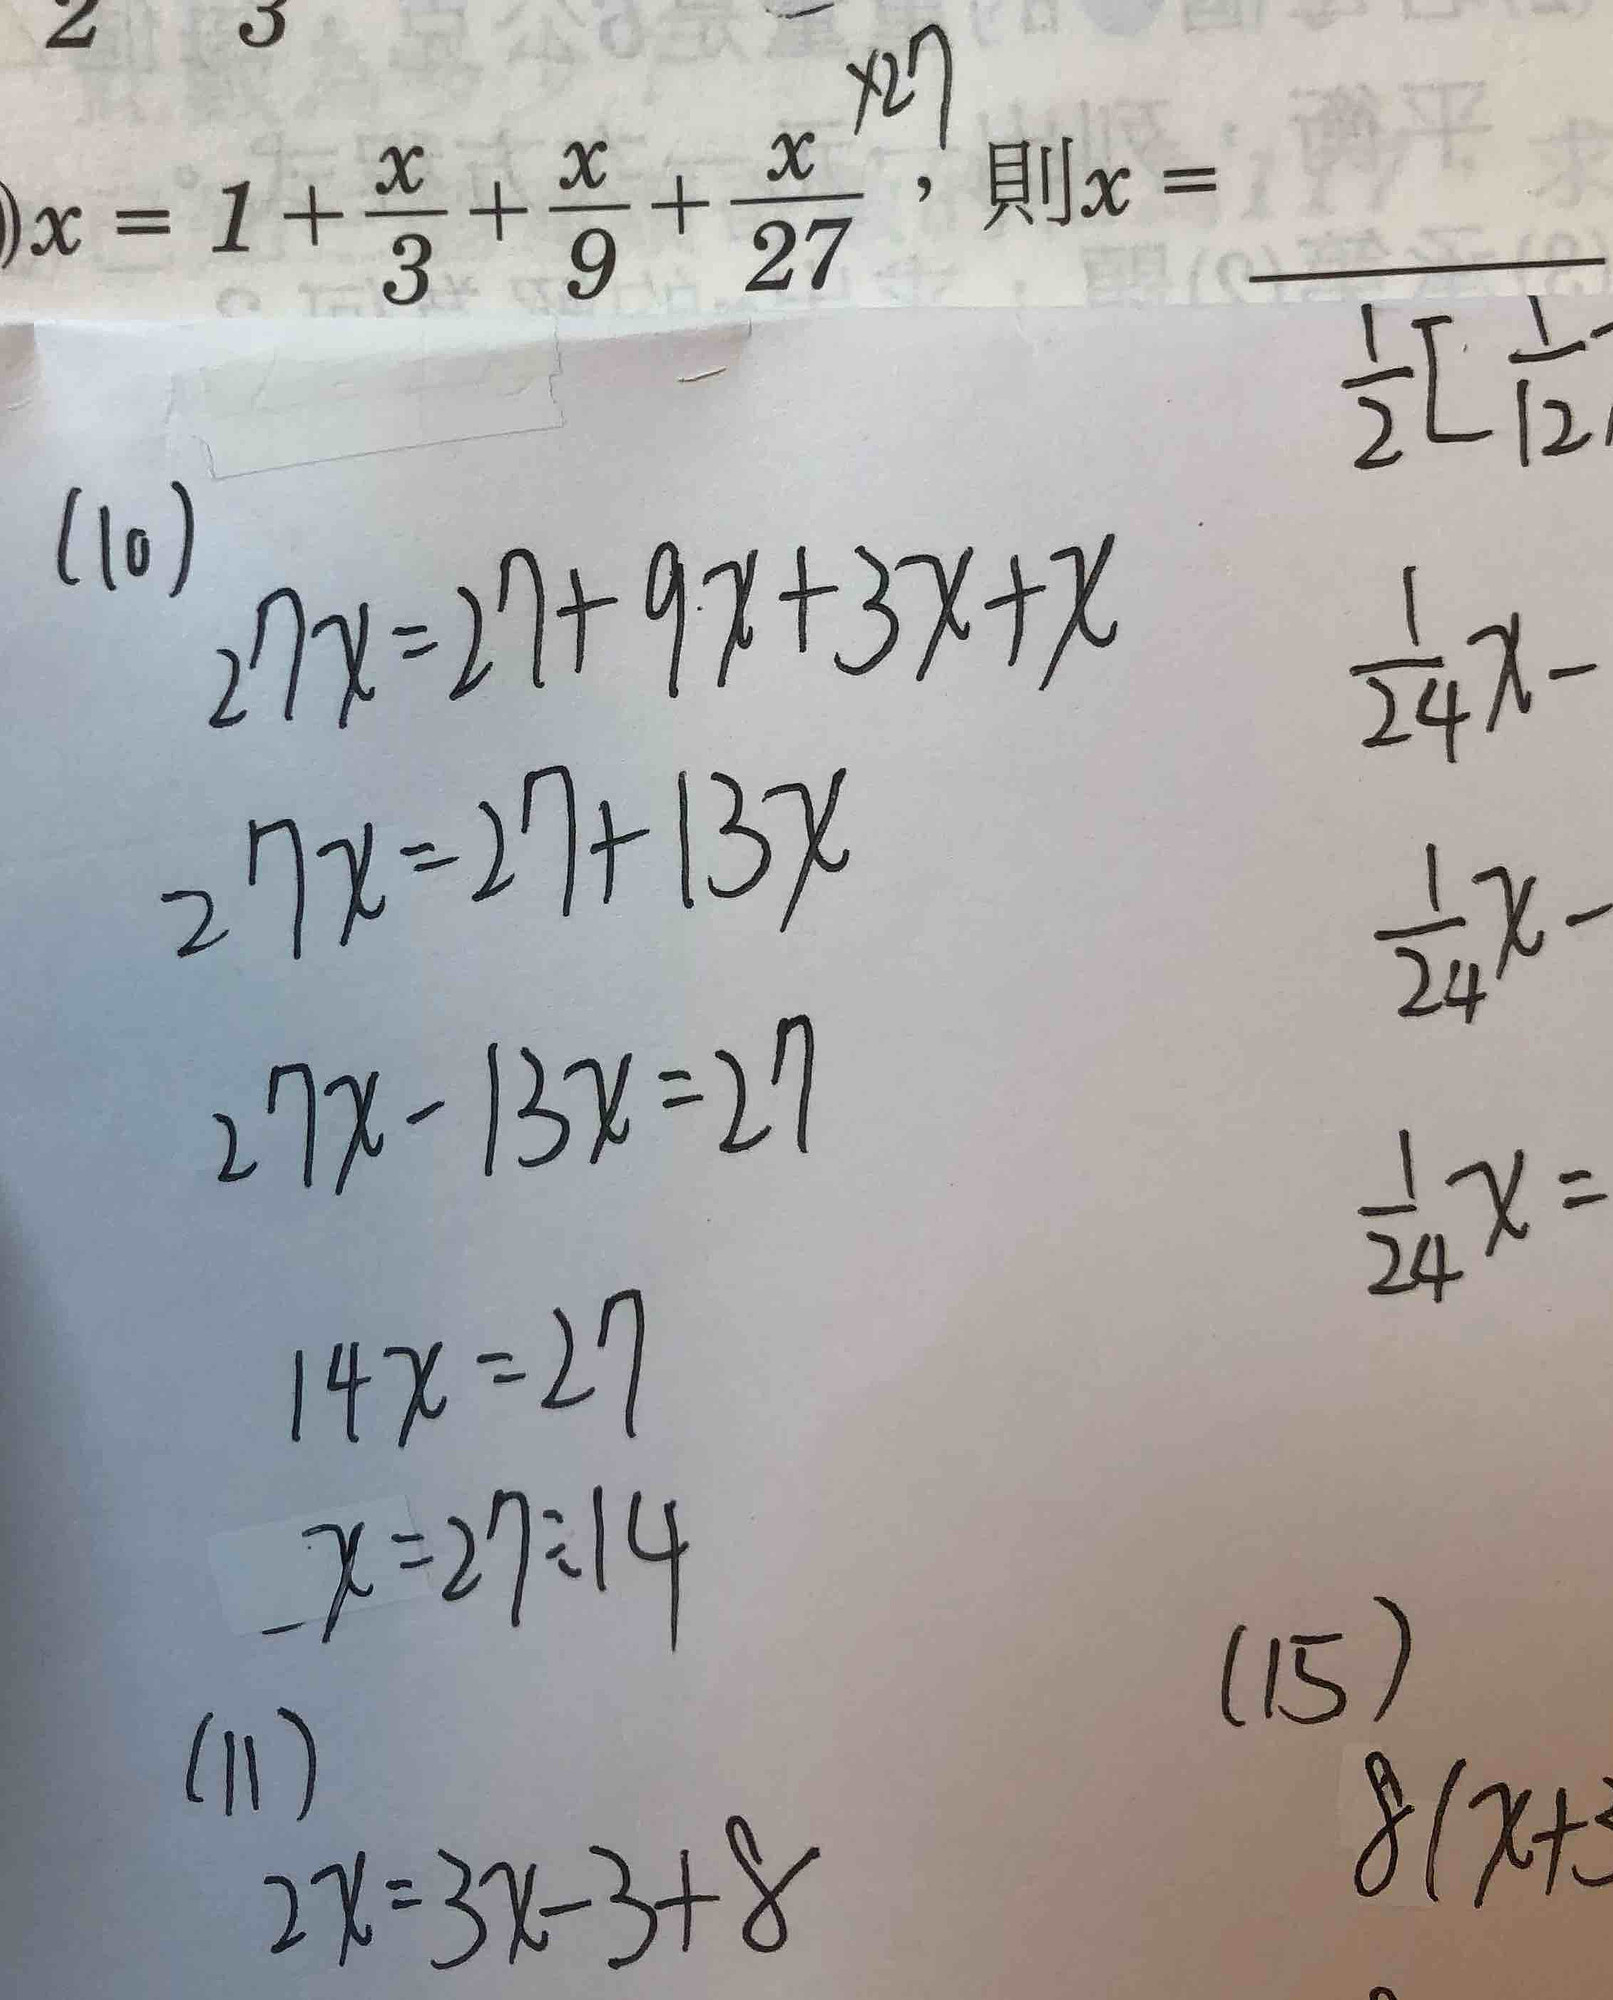 2 3
×27
)x = 1 + x/3 + x/9 + x/27 , 則x =
(10)
27x=27+9x+3x+x
27x=27+13x
27x-13x=27
14x=27
x=27÷14
(11)
2x=3x-3+8
1/2[ 1/12
1/24x-
1/24x-
1/24x=
(15)
8(x+3